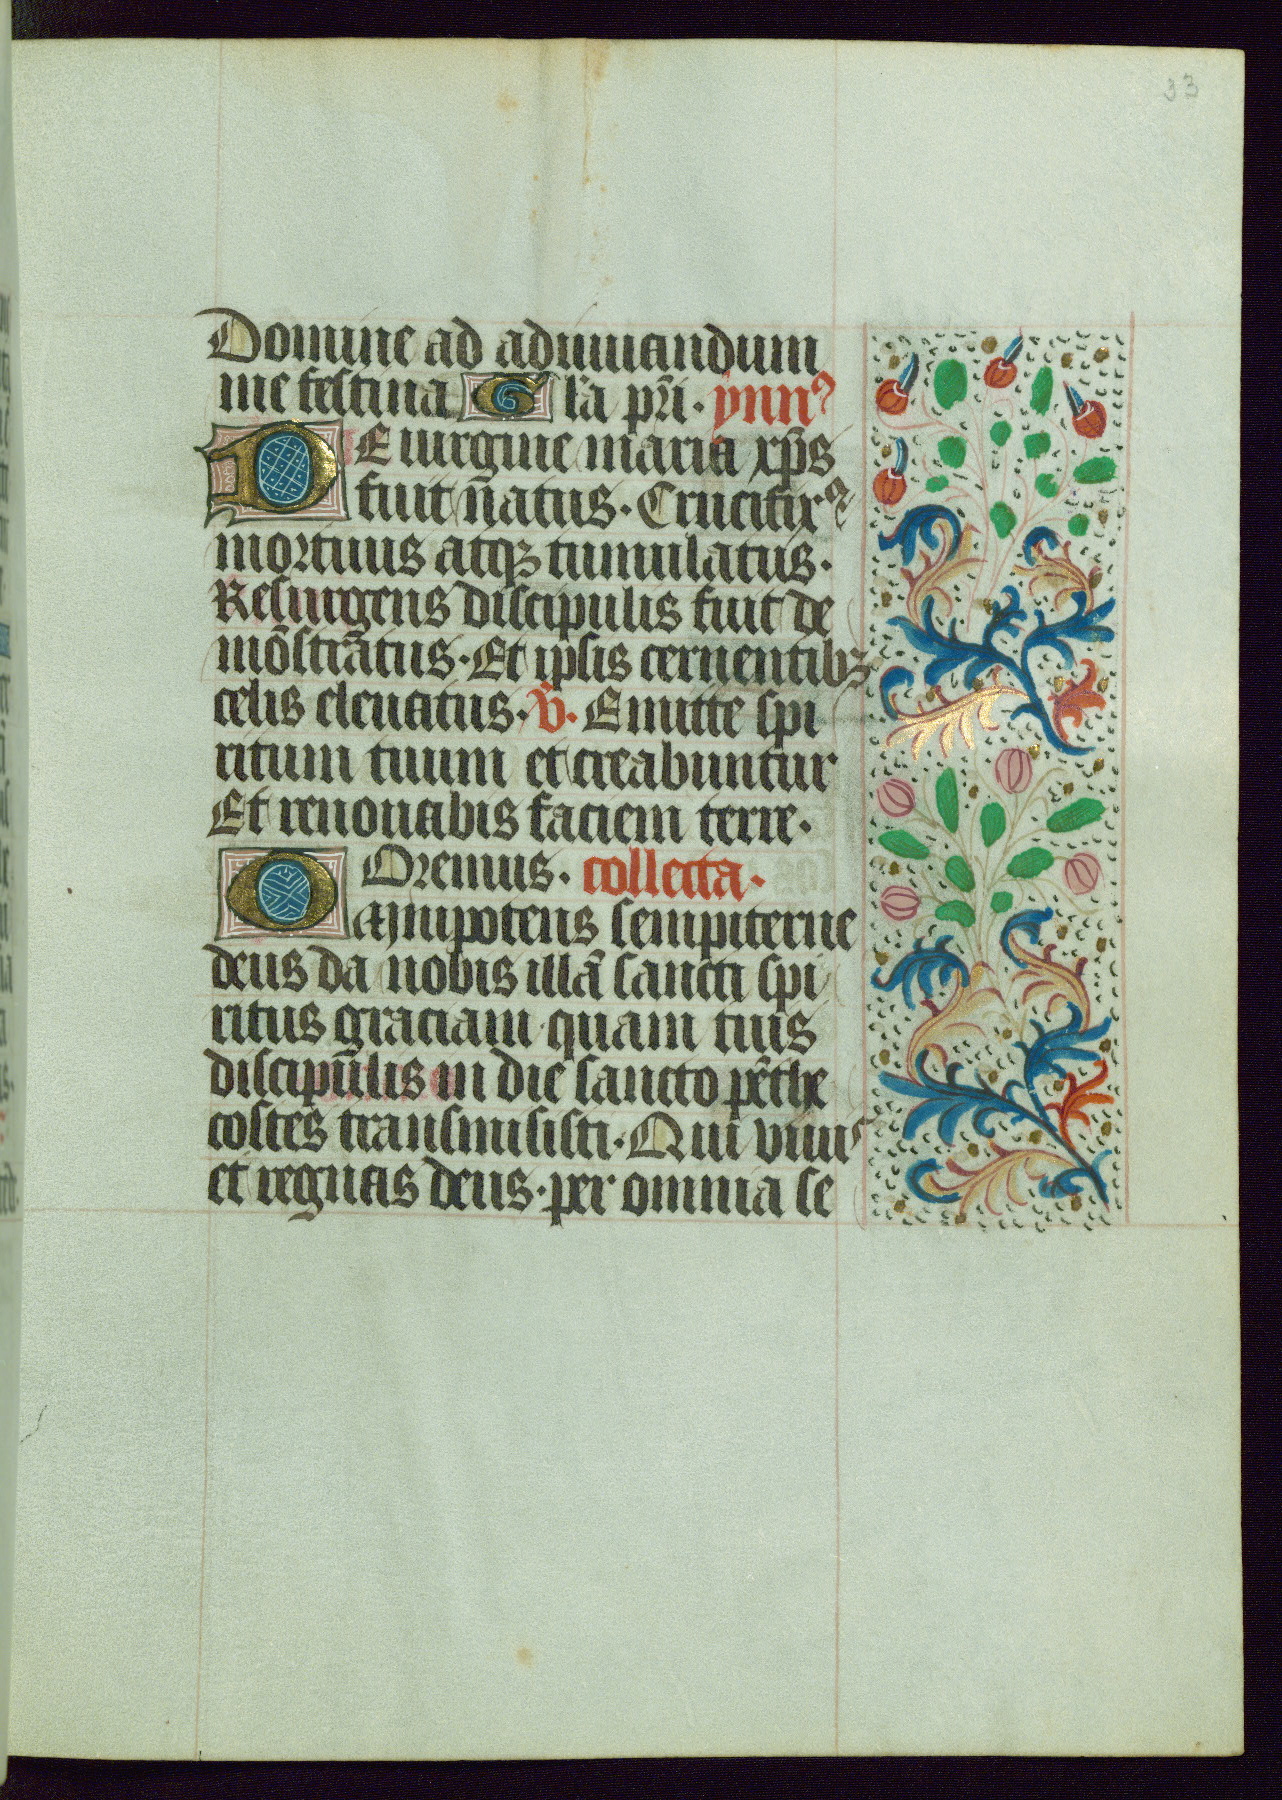 33
Domine ad adiuuandum
me festina G l'a pr̄i. ynn⁹
DE uirgine maria xp̄s
fuit n̄atus. Crucifix⁹
mortuus atqꝫ tumulatus.
Resurgens discipulis fuit de
mōstrātus. Et ipsis cernentibꝫ
celis eleuatus. v̄. Emitte spi
ritum tuum et creabuntur
Et renouabis faciem terre.
Oremus. collecta.
Omnipotens sempiterne
deus da nobis illā sancti spi
ritus graciam quam tuis
discipulis in die sancto pēthe
costes transmisisti. Qui viuis
et regnas deus. per omnia se